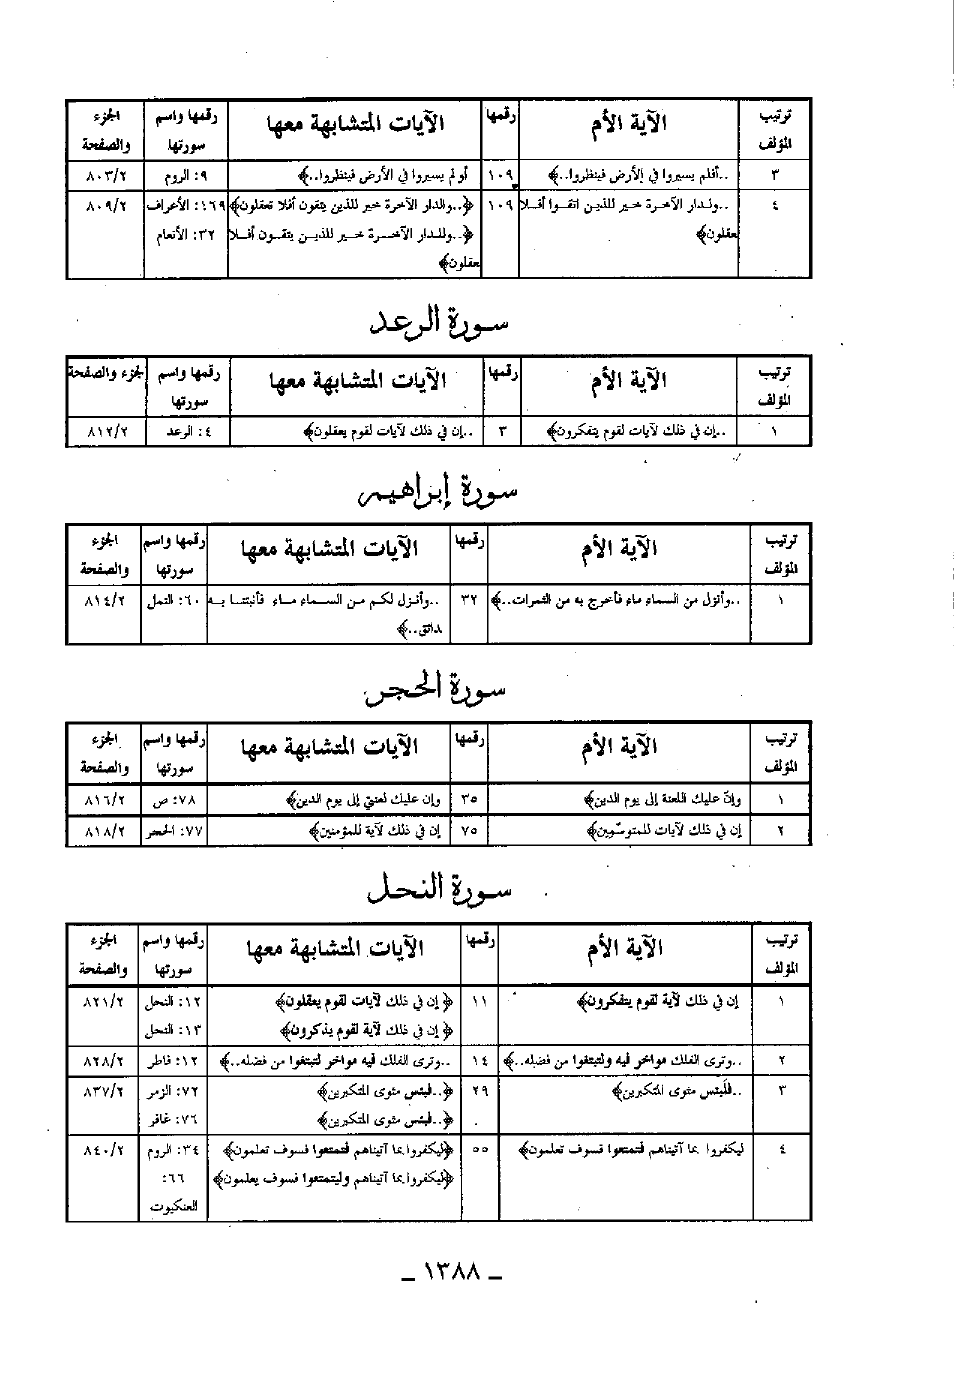 ترتيب المؤلف | الآية الأم | رقمها | الآيات المتشابهة معها | رقمها واسم سورتها | الجزء والصفحة
٣ | ..أفلم يسيروا في الأرض فينظروا..﴾ | ١٠٩ | أولم يسيروا في الأرض فينظروا..﴾ | ٩: الروم | ٨٠٣/٢
٤ | ..ولدار الآخرة خير للذين اتقوا أفلا | ١٠٩ | ﴿..والدار الآخرة خير للذين يتقون أفلا تعقلون﴾ | ١٦٩: الأعراف | ٨٠٩/٢
تعقلون﴾ | ﴿..وللدار الآخرة خير للذين يتقون أفلا | ٣٢: الأنعام
تعقلون﴾
سورة الرعد
ترتيب المؤلف | الآية الأم | رقمها | الآيات المتشابهة معها | رقمها واسم سورتها | الجزء والصفحة
١ | ..إن في ذلك لآيات لقوم يتفكرون﴾ | ٣ | ..إن في ذلك لآيات لقوم يعقلون﴾ | ٤: الرعد | ٨١٢/٢
سورة إبراهيم
ترتيب المؤلف | الآية الأم | رقمها | الآيات المتشابهة معها | رقمها واسم سورتها | الجزء والصفحة
١ | ..وأنزل من السماء ماء فأخرج به من الثمرات..﴾ | ٣٢ | ..وأنزل لكم من السماء ماء فأنبتنا به | ٦٠: النمل | ٨١٤/٢
حدائق..﴾
سورة الحجر
ترتيب المؤلف | الآية الأم | رقمها | الآيات المتشابهة معها | رقمها واسم سورتها | الجزء والصفحة
١ | وإنّ عليك اللعنة إلى يوم الدين﴾ | ٣٥ | وإن عليك لعنتي إلى يوم الدين﴾ | ٧٨: ص | ٨١٦/٢
٢ | إن في ذلك لآيات للمتوسّمين﴾ | ٧٥ | إن في ذلك لآية للمؤمنين﴾ | ٧٧: الحجر | ٨١٨/٢
سورة النحل
ترتيب المؤلف | الآية الأم | رقمها | الآيات المتشابهة معها | رقمها واسم سورتها | الجزء والصفحة
١ | إن في ذلك لآية لقوم يتفكرون﴾ | ١١ | ﴿إن في ذلك لآيات لقوم يعقلون﴾ | ١٢: النحل | ٨٢١/٢
﴿إن في ذلك لآية لقوم يذكرون﴾ | ١٣: النحل
٢ | ..وترى الفلك مواخر فيه ولتبتغوا من فضله..﴾ | ١٤ | ..وترى الفلك فيه مواخر لتبتغوا من فضله..﴾ | ١٢: فاطر | ٨٢٨/٢
٣ | ..فلبئس مثوى المتكبرين﴾ | ٢٩ | ﴿..فبئس مثوى المتكبرين﴾ | ٧٢: الزمر | ٨٣٧/٢
﴿..فبئس مثوى المتكبرين﴾ | ٧٦: غافر
٤ | ليكفروا بما آتيناهم فتمتعوا فسوف تعلمون﴾ | ٥٥ | ﴿ليكفروا بما آتيناهم فتمتعوا فسوف تعلمون﴾ | ٣٤: الروم | ٨٤٠/٢
﴿ليكفروا بما آتيناهم وليتمتعوا فسوف يعلمون﴾ | ٦٦:
العنكبوت
ـ ١٣٨٨ ـ